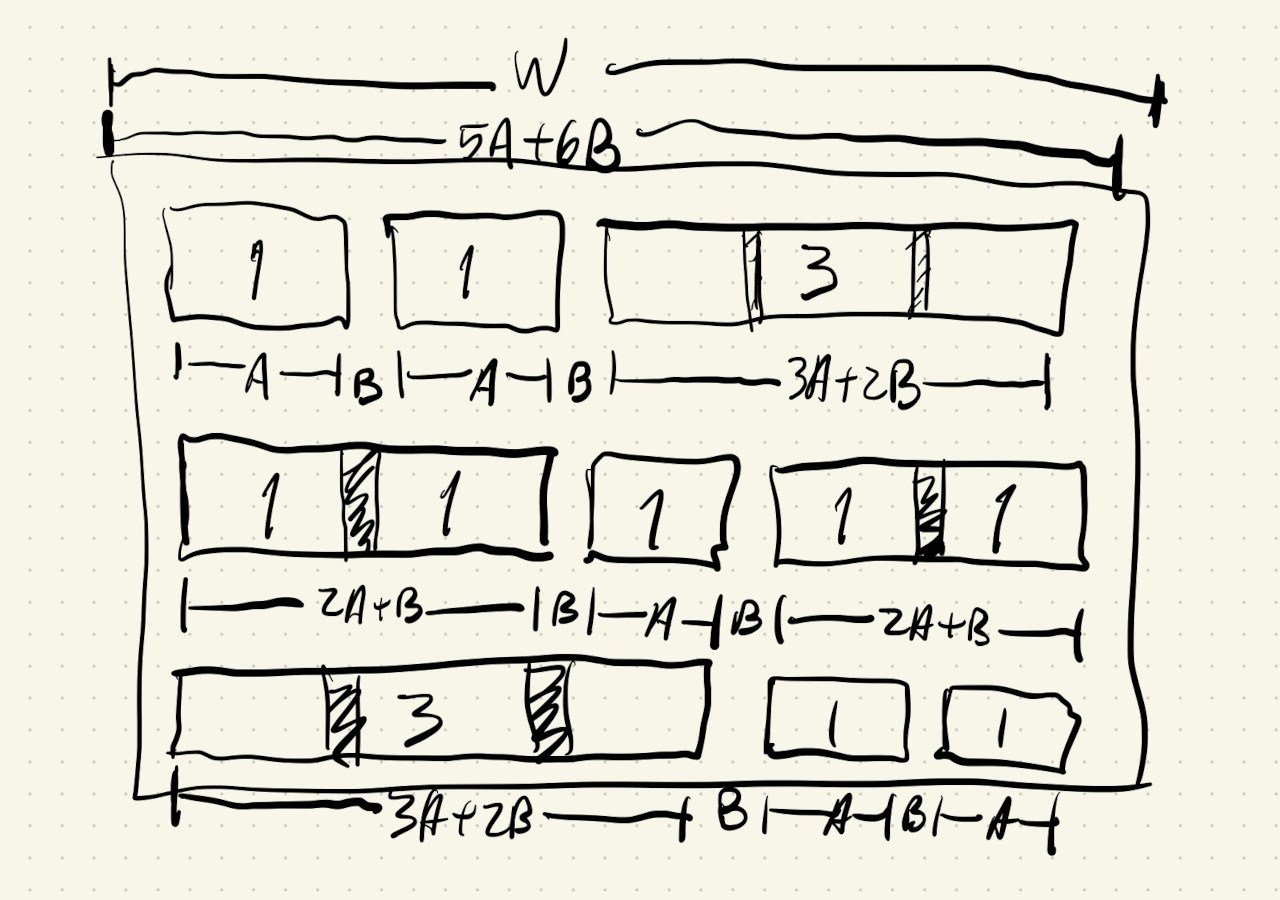 W
5A+6B
1 1 3
A B A B 3A+2B
1 1 1 1 1
2A+B B A B 2A+B
3 1 1
3A+2B B A B A